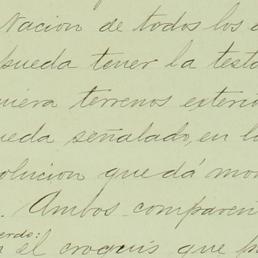 Nacion de todos los
pueda tener la testa
quiera terrenos exterio
queda señalado, en l
solucion que dá mo
. Ambos comparecie
erdo:
n el croquis que p